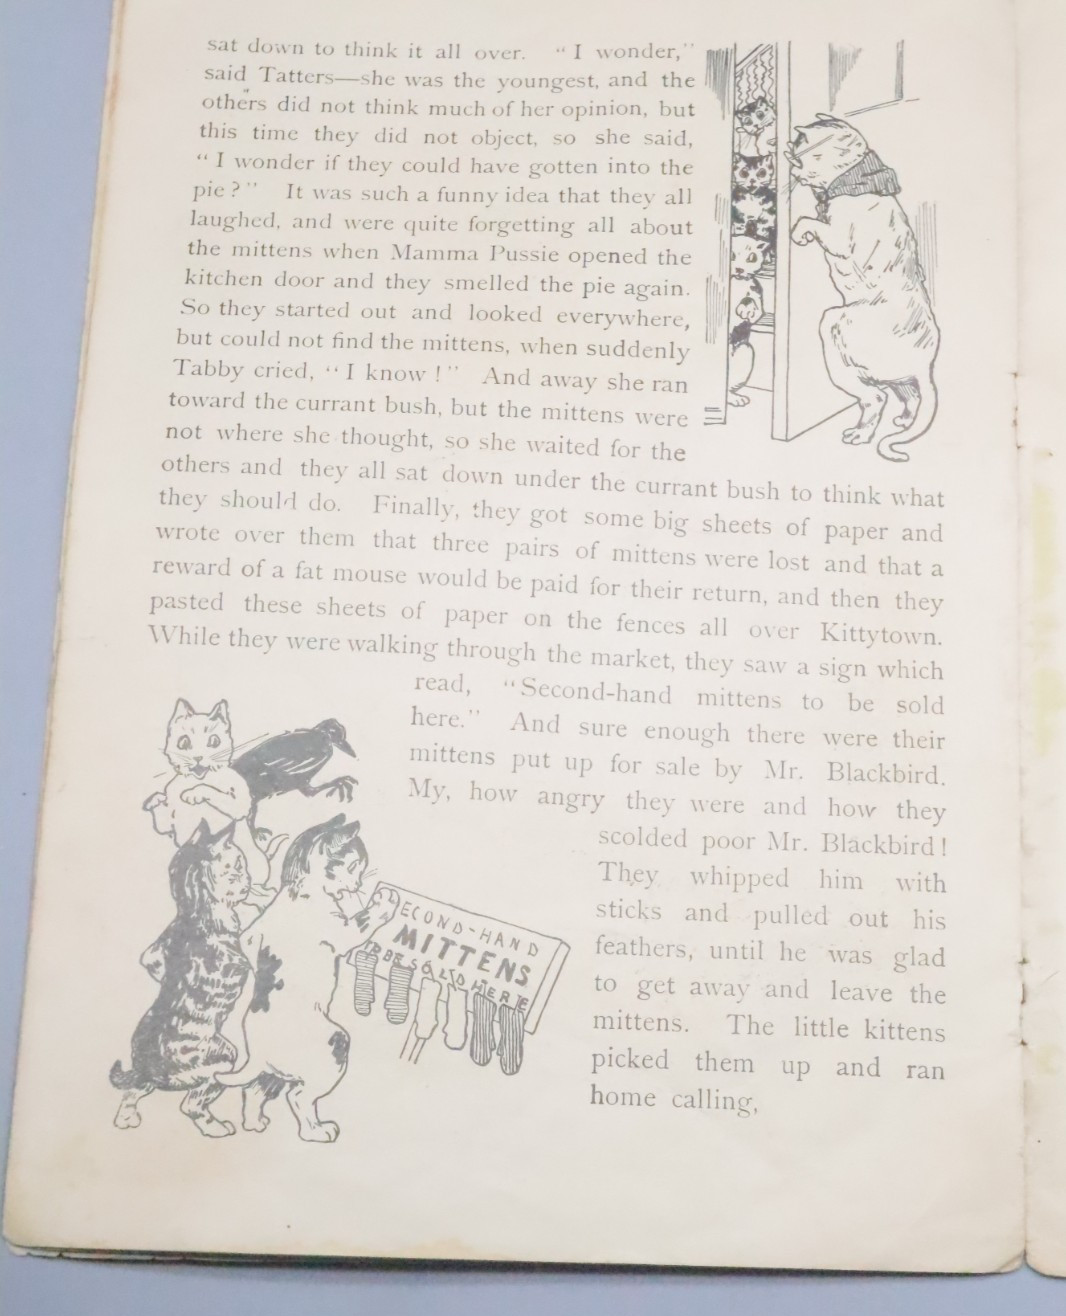 sat down to think it all over. "I wonder,"
said Tatters—she was the youngest, and the
others did not think much of her opinion, but
this time they did not object, so she said,
"I wonder if they could have gotten into the
pie?" It was such a funny idea that they all
laughed, and were quite forgetting all about
the mittens when Mamma Pussie opened the
kitchen door and they smelled the pie again.
So they started out and looked everywhere,
but could not find the mittens, when suddenly
Tabby cried, "I know!" And away she ran
toward the currant bush, but the mittens were
not where she thought, so she waited for the
others and they all sat down under the currant bush to think what
they should do. Finally, they got some big sheets of paper and
wrote over them that three pairs of mittens were lost and that a
reward of a fat mouse would be paid for their return, and then they
pasted these sheets of paper on the fences all over Kittytown.
While they were walking through the market, they saw a sign which
read, "Second-hand mittens to be sold
here." And sure enough there were their
mittens put up for sale by Mr. Blackbird.
My, how angry they were and how they
scolded poor Mr. Blackbird!
They whipped him with
sticks and pulled out his
feathers, until he was glad
to get away and leave the
mittens. The little kittens
picked them up and ran
home calling,
ECOND-HAND
MITTENS
BE SOLD HERE